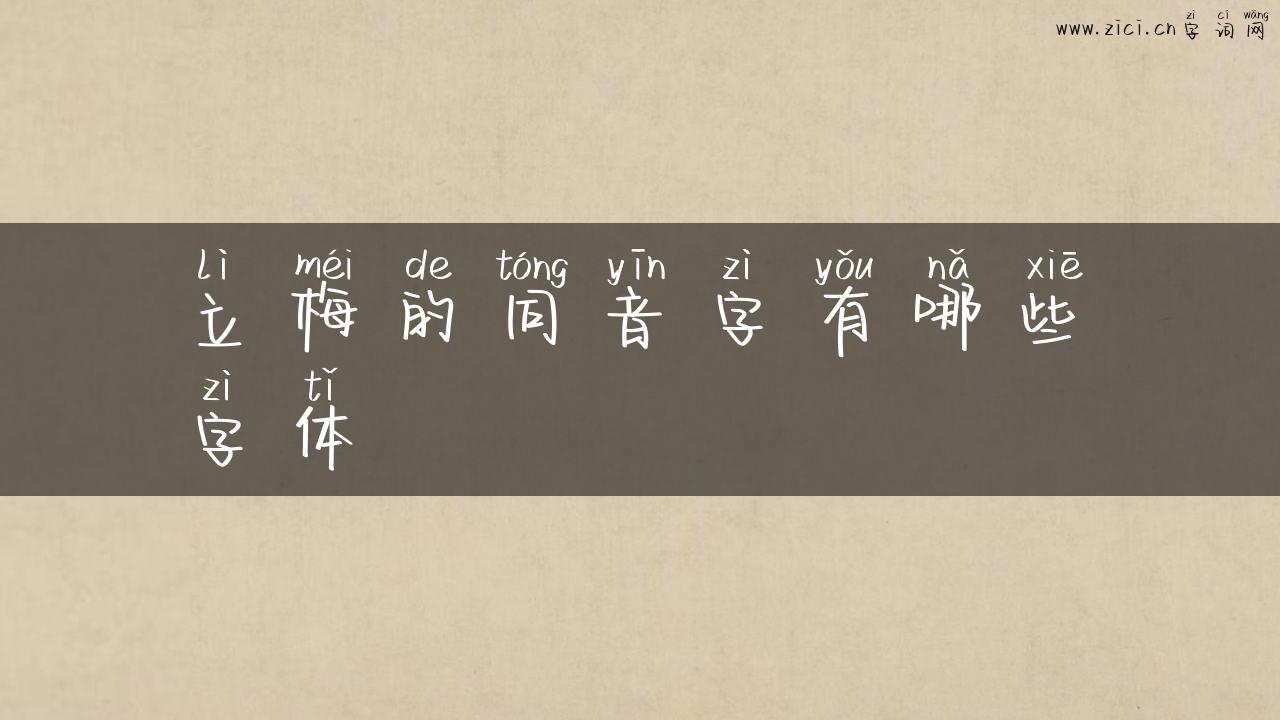 zì cí wǎng
www.zici.cn 字词网
lì méi de tóng yīn zì yǒu nǎ xiē
立梅的同音字有哪些
zì tǐ
字体